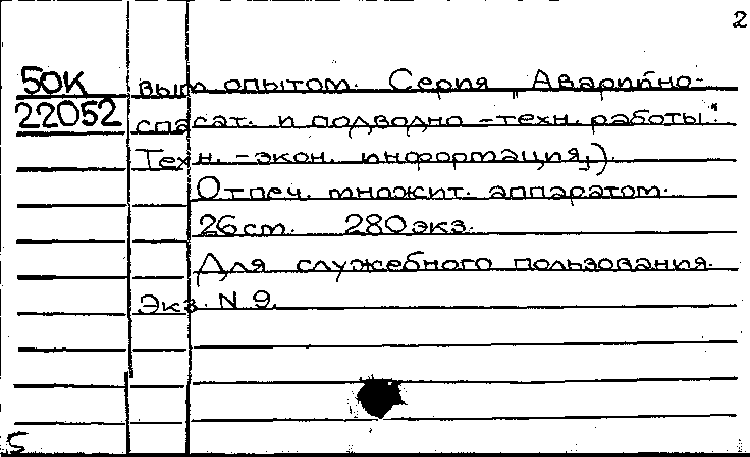 2
50К
22052
вым опытом. Серия „Аварийно-
спасат. и подводно-техн. работы":
Техн.-экон. информация,).
Отпеч. множит. аппаратом.
26 ст. 280 экз.
Для служебного пользования.
Экз. N 9.
5